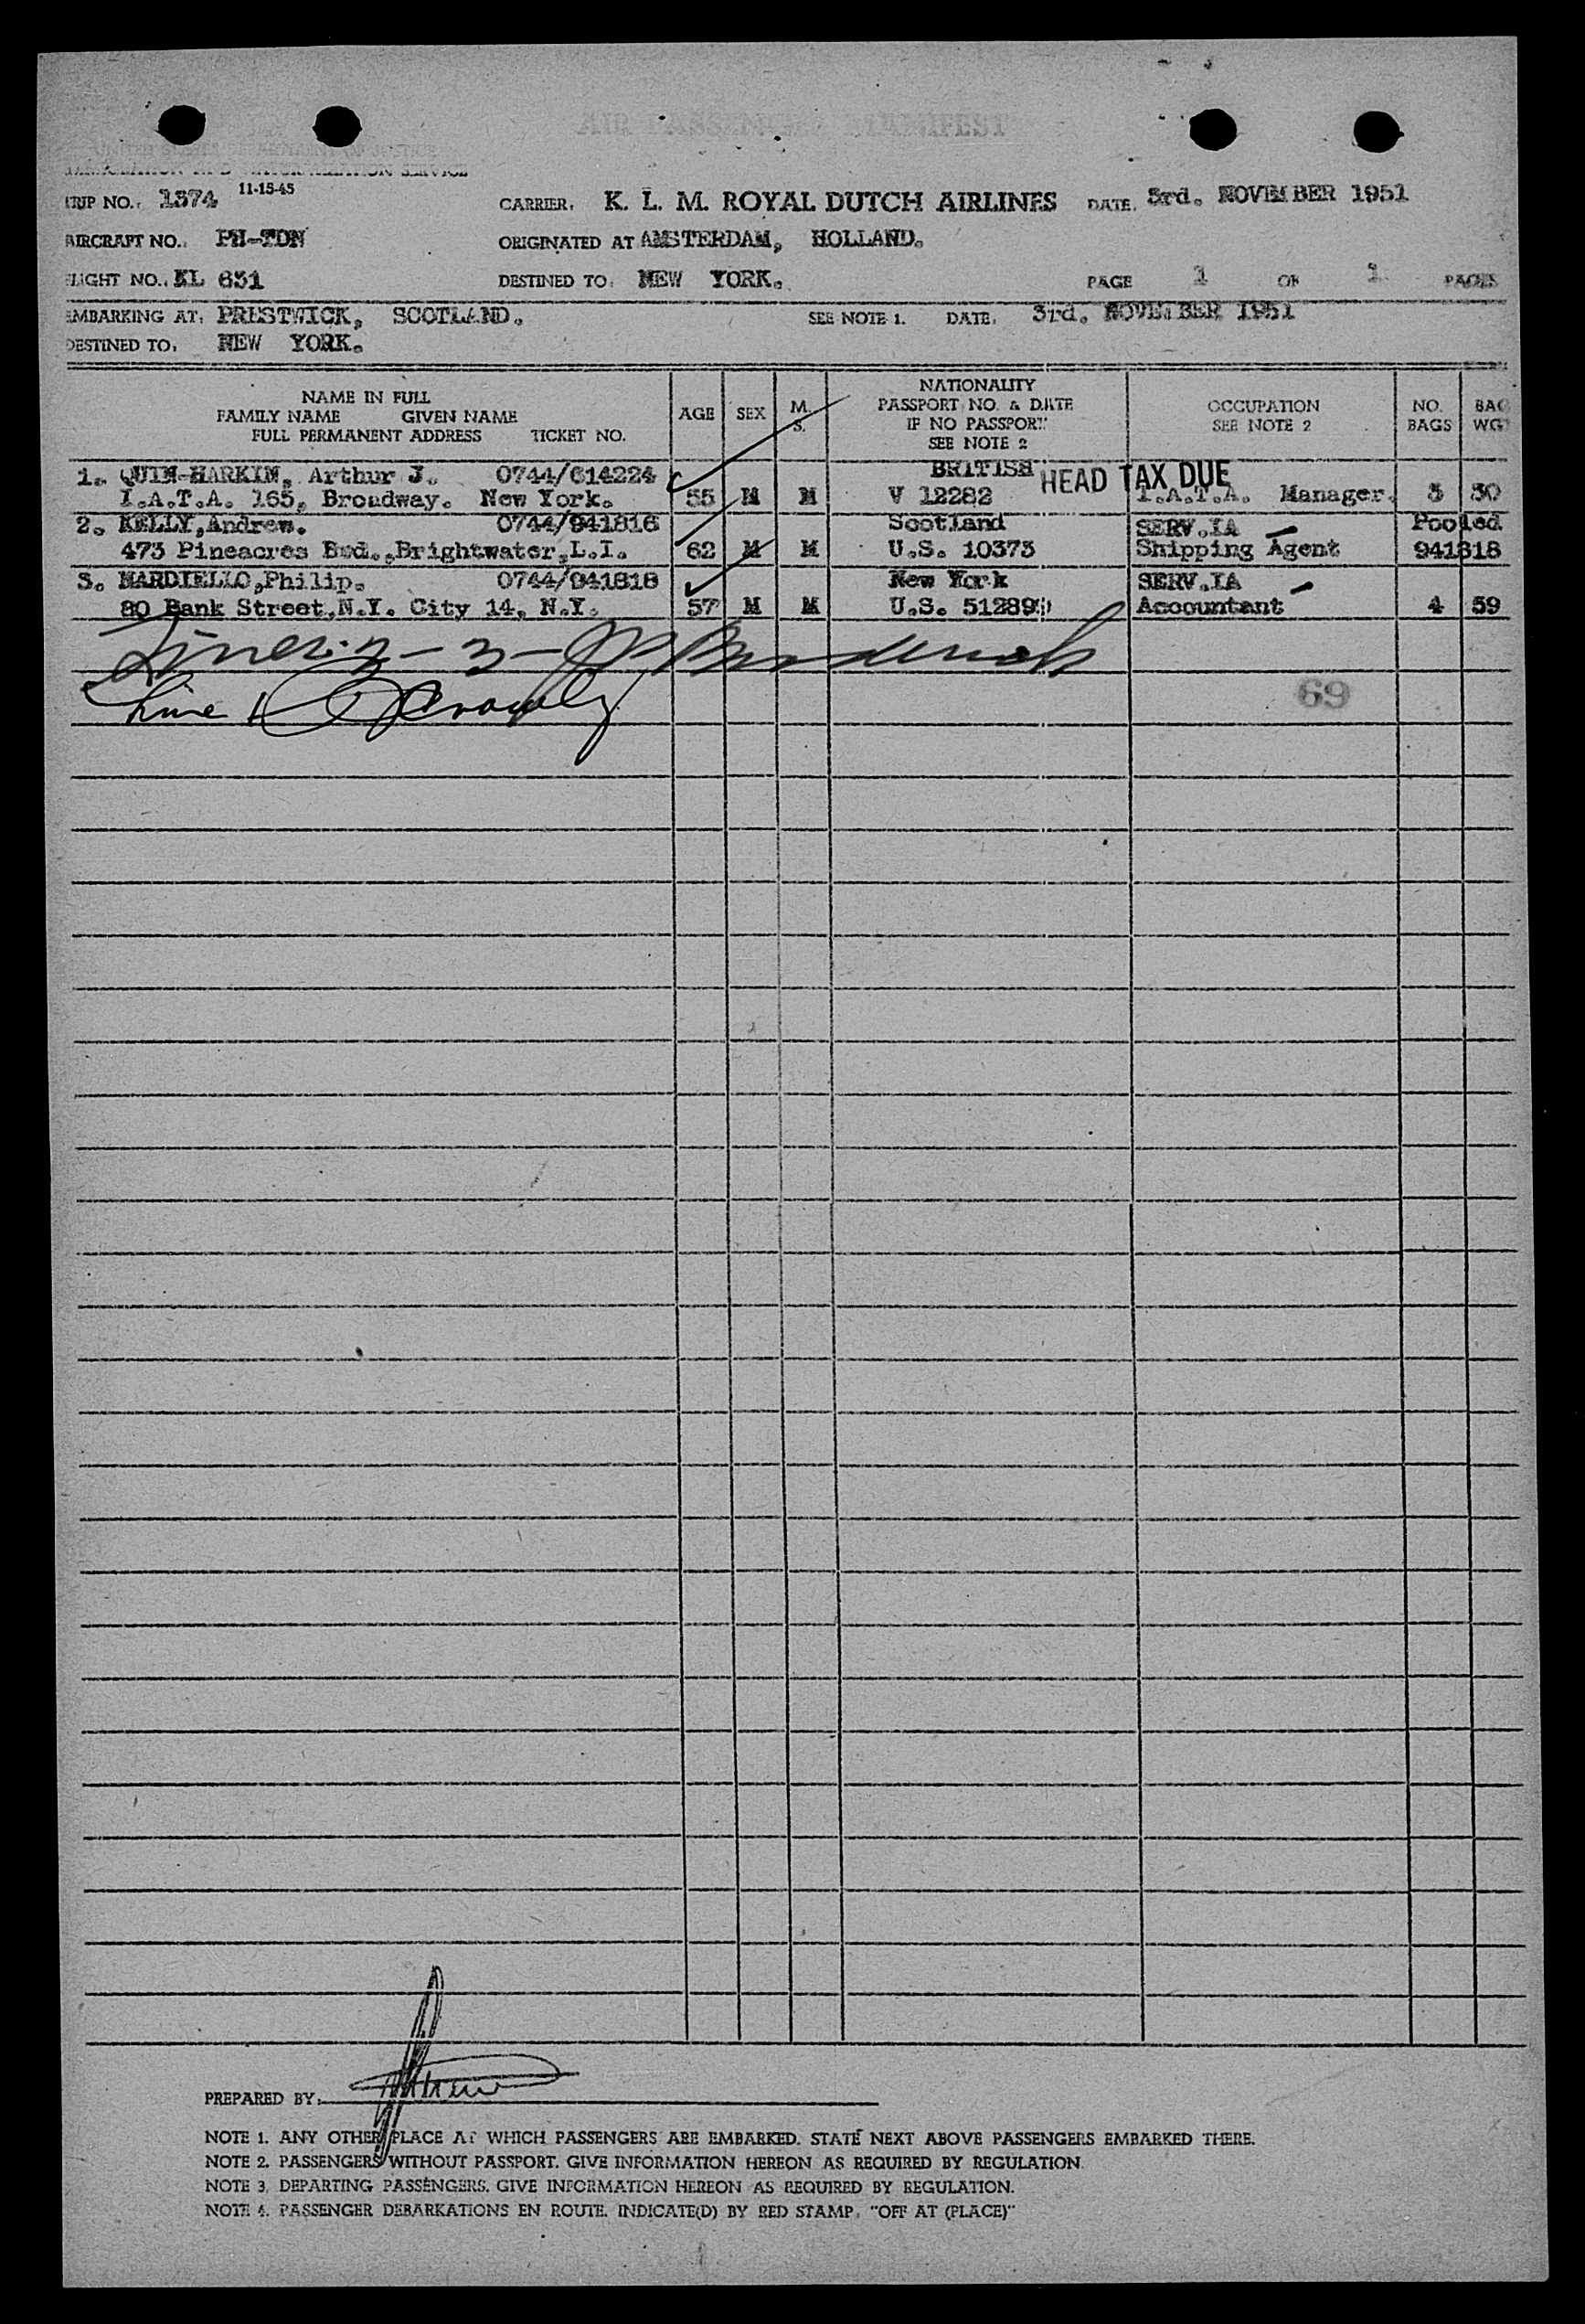 AIR PASSENGER MANIFEST
UNITED STATES DEPARTMENT OF JUSTICE
IMMIGRATION AND NATURALIZATION SERVICE
TRIP NO.: 1374 11-15-45 CARRIER: K. L. M. ROYAL DUTCH AIRLINES DATE: 3rd. NOVEMBER 1951
AIRCRAFT NO.: PH-TDN ORIGINATED AT AMSTERDAM, HOLLAND.
FLIGHT NO.: KL 631 DESTINED TO: NEW YORK. PAGE 1 OF 1 PAGES
EMBARKING AT: PRESTWICK, SCOTLAND. SEE NOTE 1. DATE: 3rd. NOVEMBER 1951
DESTINED TO: NEW YORK.
NAME IN FULL
FAMILY NAME GIVEN NAME
FULL PERMANENT ADDRESS TICKET NO.
AGE SEX M. S.
NATIONALITY
PASSPORT NO. & DATE
IF NO PASSPORT
SEE NOTE 2
OCCUPATION
SEE NOTE 2
NO. BAGS
BAG WGT
1. QUIN-HARKIN, Arthur J. 0744/614224 BRITISH HEAD TAX DUE
I.A.T.A. 165, Broadway. New York. 55 M M V 12282 I.A.T.A. Manager. 3 30
2. KELLY,Andrew. 0744/941816 Scotland SERV.IA Pooled
473 Pineacres Bvd.,Brightwater,L.I. 62 M M U.S. 10373 Shipping Agent 941818
3. NARDIELLO,Philip. 0744/941818 New York SERV.IA
80 Bank Street,N.Y. City 14, N.Y. 57 M M U.S. 51289 Accountant 4 59
Lines 2-3-
Line 1
69
PREPARED BY:
NOTE 1. ANY OTHER PLACE AT WHICH PASSENGERS ARE EMBARKED. STATE NEXT ABOVE PASSENGERS EMBARKED THERE.
NOTE 2. PASSENGERS WITHOUT PASSPORT. GIVE INFORMATION HEREON AS REQUIRED BY REGULATION.
NOTE 3. DEPARTING PASSENGERS. GIVE INFORMATION HEREON AS REQUIRED BY REGULATION.
NOTE 4. PASSENGER DEBARKATIONS EN ROUTE. INDICATE(D) BY RED STAMP, "OFF AT (PLACE)"